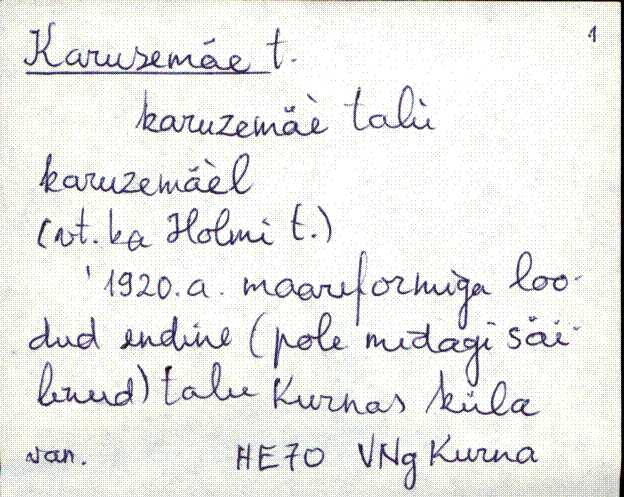 1
Karusemäe t.
karuzemäè talù
karuzemäèl
(vt. ka Holmi t.)
'1920.a. maareformiga loo-
dud endine (pole midagi säi-
linud) talu Kurnas küla
van. HE70 VNg Kurna